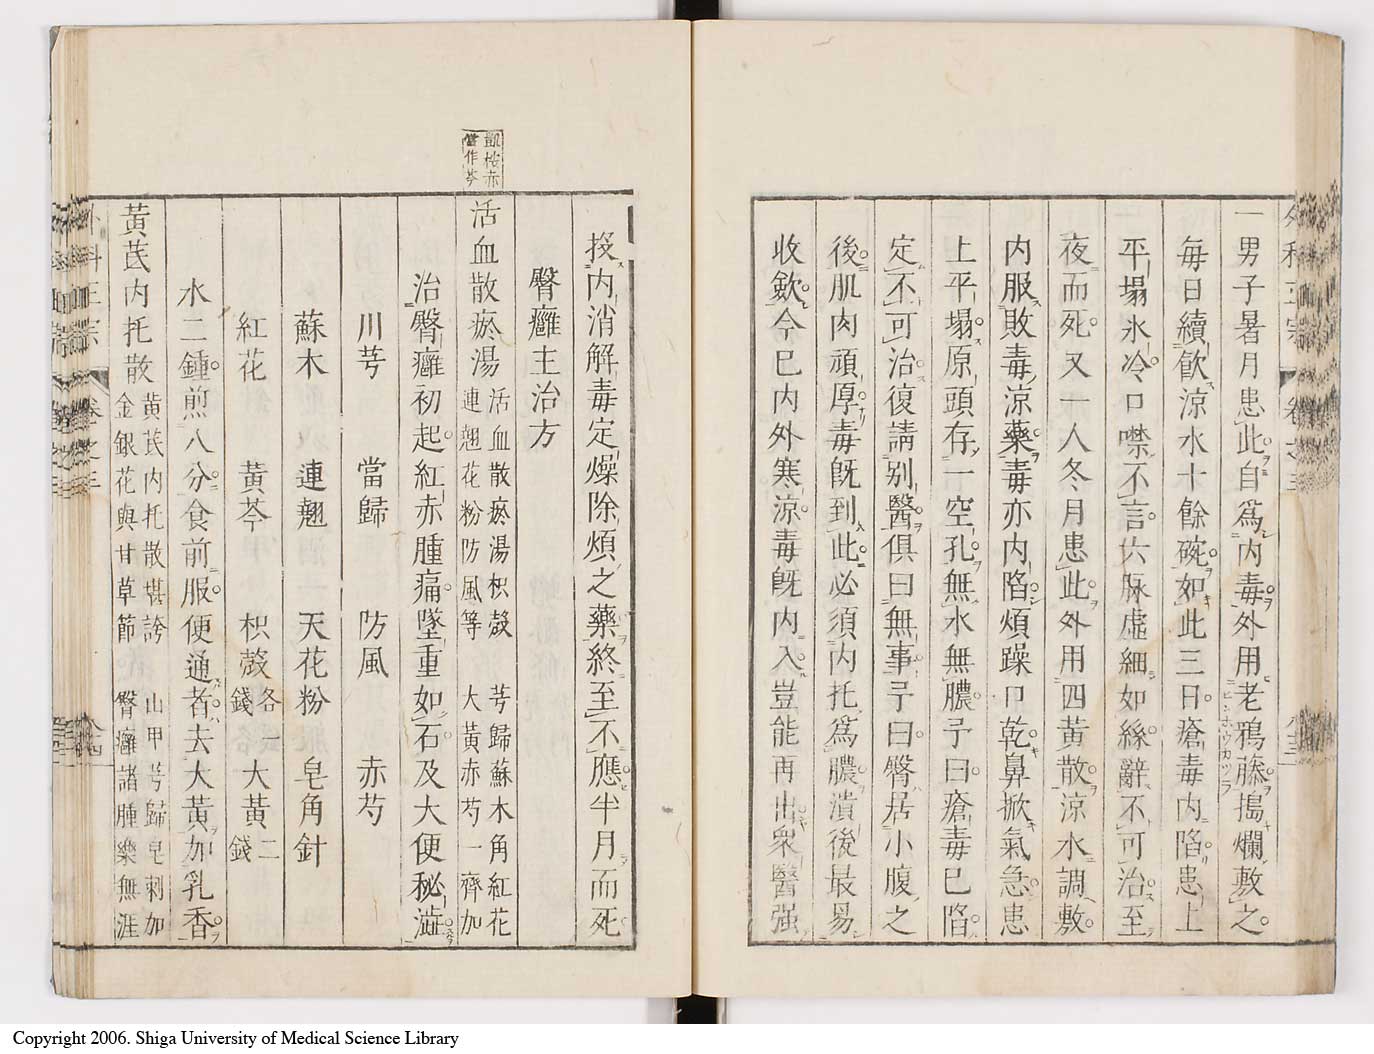 一男子暑月患此自爲内毒外用老鴉藤搗爛敷之
毎日續飲涼水十餘碗如此三日瘡毒内陷患上
平塌氷冷口噤不言六脉虚細如絲辭不可治至
夜而死又一人冬月患此外用四黄散涼水調敷
内服敗毒涼藥毒亦内陷煩躁口乾鼻掀氣急患
上平塌原頭存一空孔無水無膿予曰瘡毒已陷
定不可治復請別醫俱曰無事予曰臀居小腹之
後肌肉頑厚毒既到此必須内托爲膿潰後最易
收斂今已内外寒涼毒既内入豈能再出衆醫强
投内消解毒定燥除煩之藥終至不應半月而死
臀癰主治方
凱按赤
當作芩
活血散瘀湯 活血散瘀湯枳殼 芎歸蘇木角紅花
連翹花粉防風等 大黄赤芍一齊加
治臀癰初起紅赤腫痛墜重如石及大便秘澁
川芎 當歸 防風 赤芍
蘇木 連翹 天花粉 皂角針
紅花 黄芩 枳殼各一錢 大黄二錢
水二鍾煎八分食前服便通者去大黄加乳香
黄芪内托散 黄芪内托散堪誇 山甲芎歸皂刺加
金銀花與甘草節 臀癰諸腫樂無涯
外科正宗
八十四